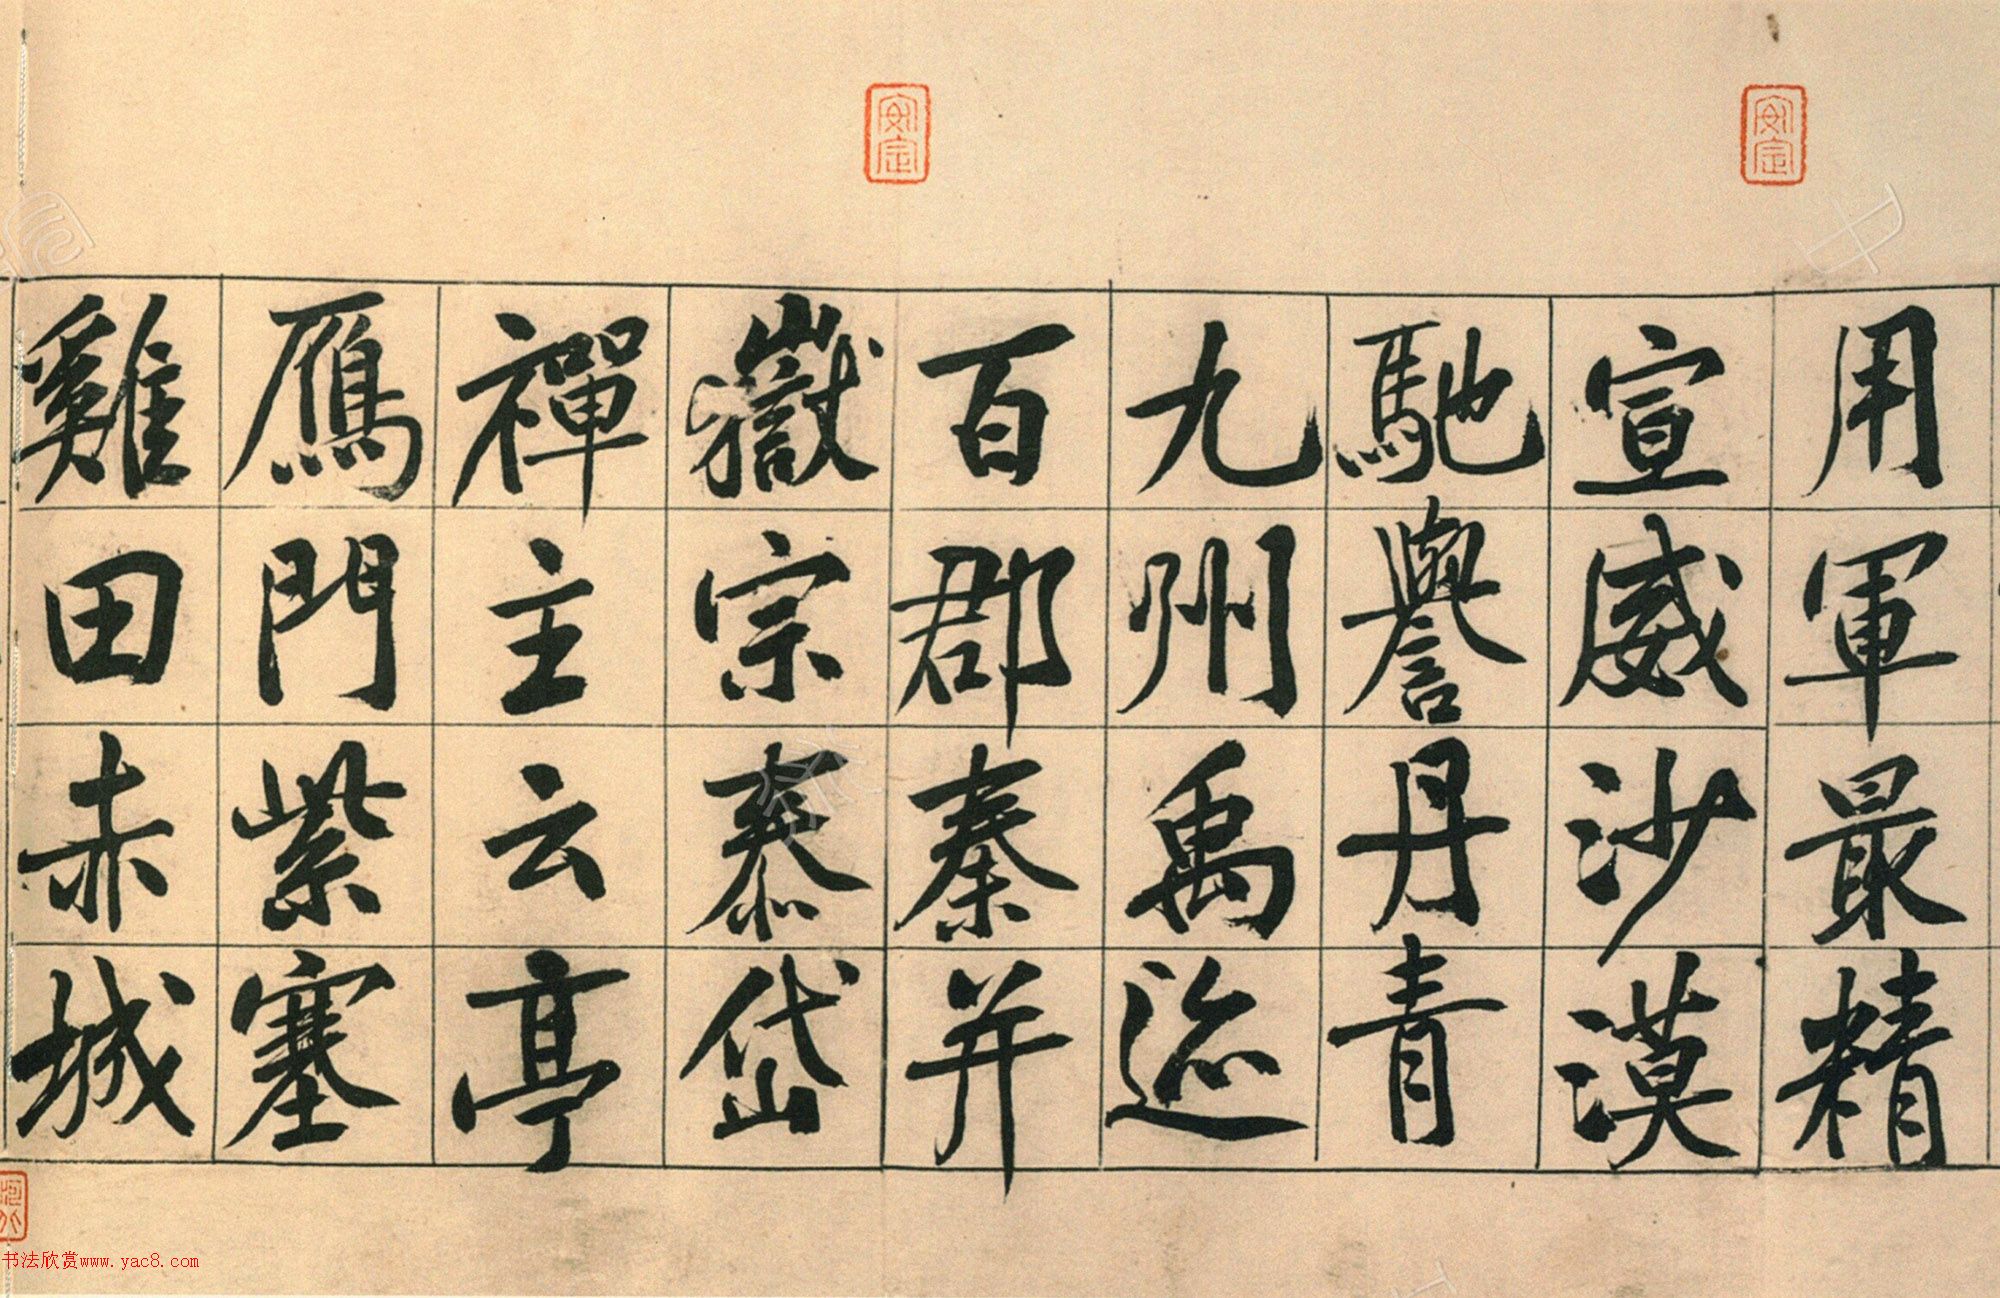 用軍最精
宣威沙漠
馳譽丹青
九州禹迹
百郡秦并
嶽宗泰岱
禪主云亭
鴈門紫塞
雞田赤城
安定
安定
书法欣赏www.yac8.com